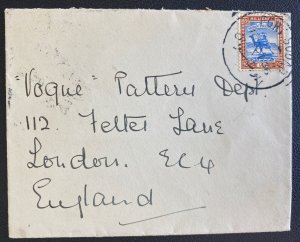 "Vogue" Pattern Dept.
112. Fetter Lane
London. EC4
England